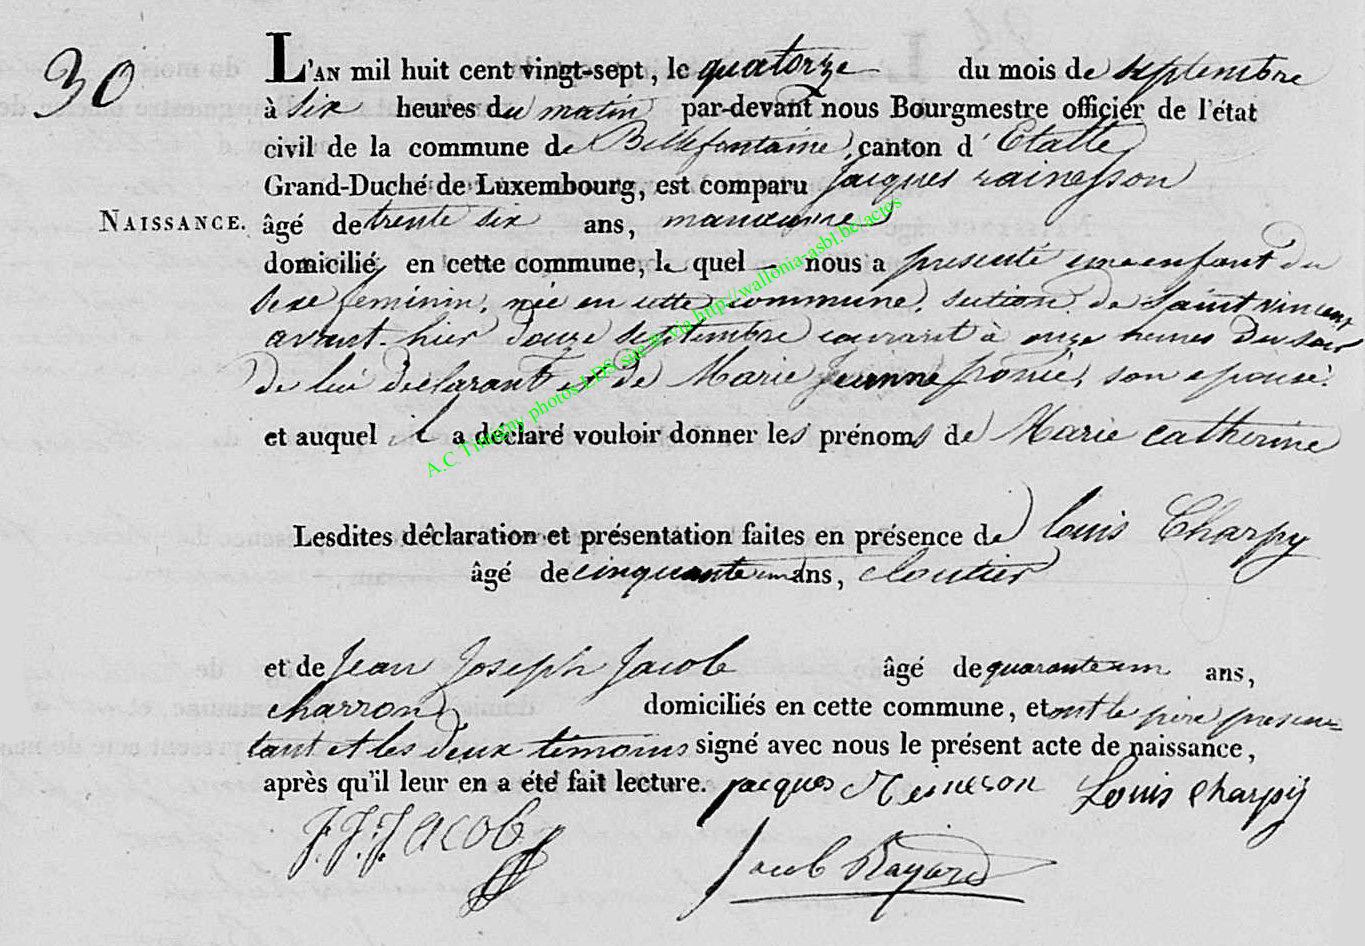 30
L'AN mil huit cent vingt-sept, le quatorze du mois de septembre
à six heures du matin par-devant nous Bourgmestre officier de l'état
civil de la commune de Bellefontaine, canton d'Etalle
Grand-Duché de Luxembourg, est comparu Jacques rainesson
NAISSANCE. âgé de trente six ans, manœuvre
domicilié en cette commune, le quel nous a presenté une enfant du
sexe feminin, née en cette commune, section de Saint vincent
avant-hier douze septembre courant à onze heures du soir
de lui declarant et de Marie Jeanne son epouse.
et auquel il a déclaré vouloir donner les prénoms de Marie Catherine
Lesdites déclaration et présentation faites en présence de louis Charpy
âgé de cinquante un ans, cloutier
et de Jean Joseph Jacob âgé de quarante un ans,
charron domiciliés en cette commune, et ont le père presen-
tant et les deux témoins signé avec nous le présent acte de naissance,
après qu'il leur en a été fait lecture. jacques Reineson Louis Charpy
J. J. JACOB
Jacob Bayard
A.C. Timothy photos LDS, site gr via http://wallonia-asbl.be/actes